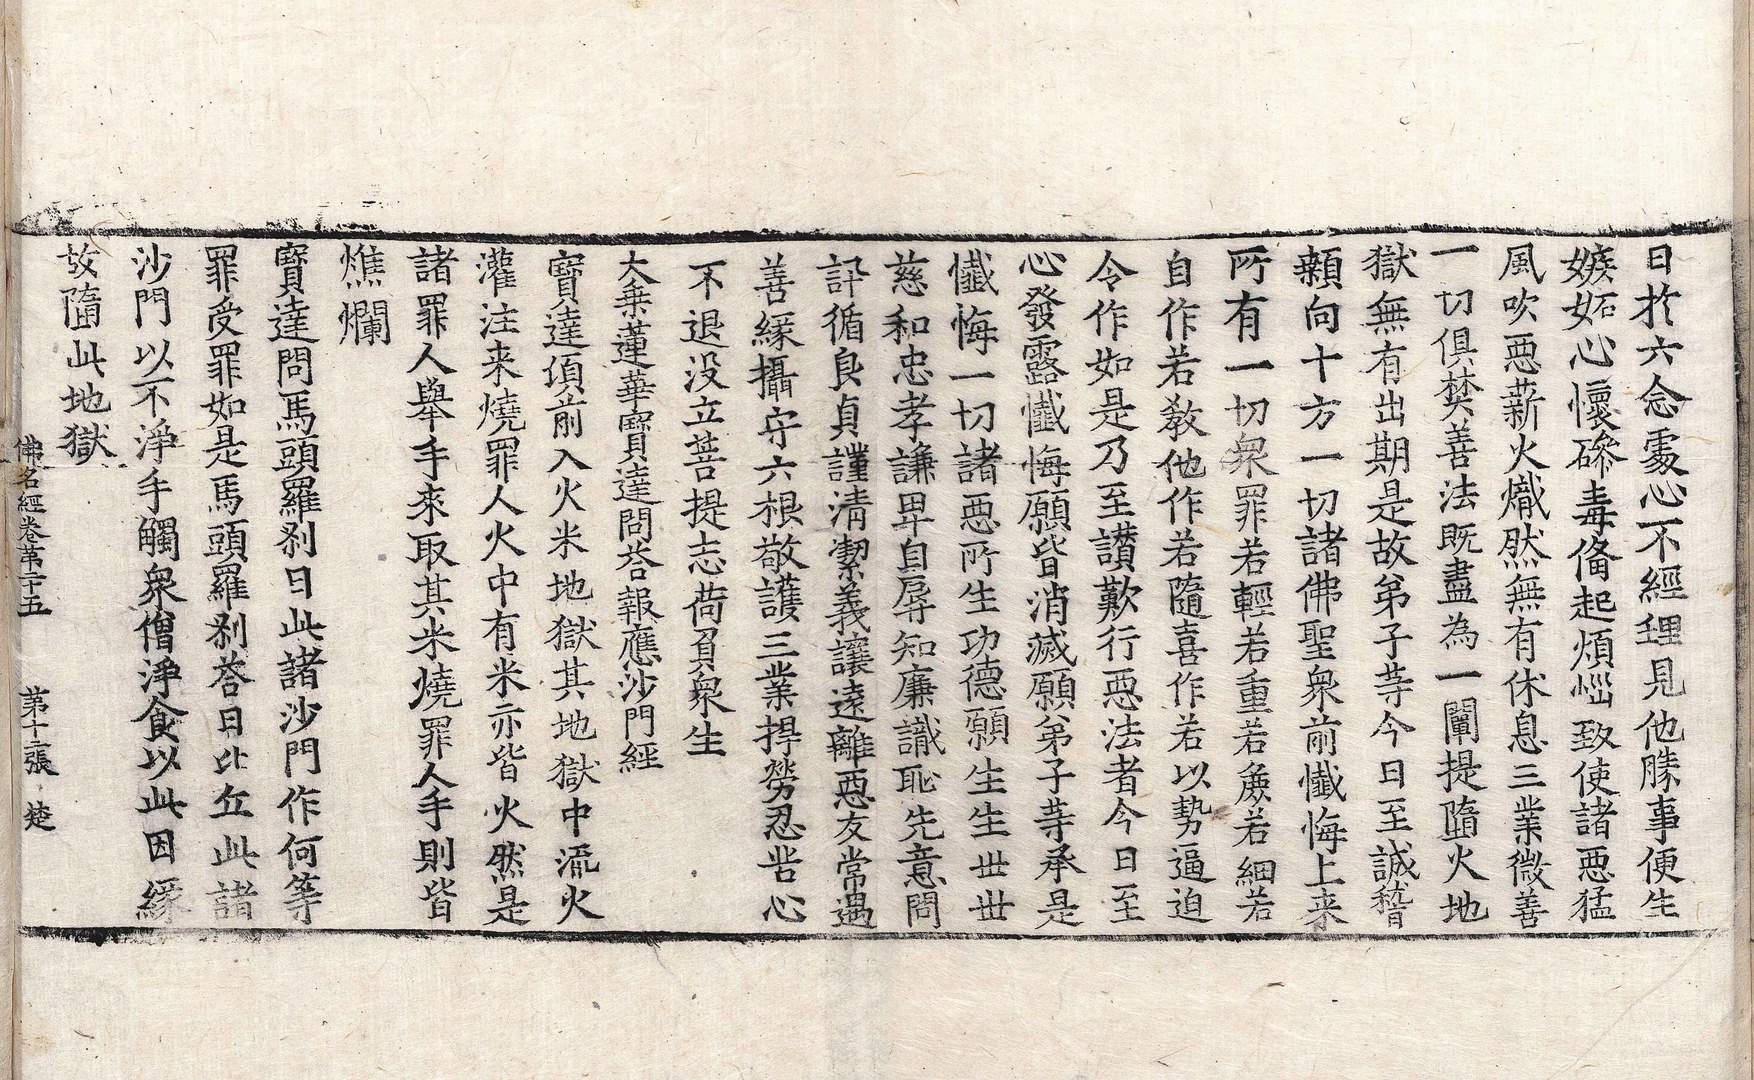 日於六念處心不經理見他勝事便生
嫉妬心懷磣毒俻起煩惱致使諸惡猛
風吹惡薪火熾然無有休息三業微善
一切俱焚善法既盡為一闡提墮火地
獄無有出期是故弟子等今日至誠稽
顙向十方一切諸佛聖衆前懺悔上来
所有一切衆罪若輕若重若麁若細若
自作若教他作若隨喜作若以勢逼迫
令作如是乃至讃歎行惡法者今日至
心發露懺悔願皆消滅願弟子等承是
懺悔一切諸惡所生功德願生生世世
慈和忠孝謙卑自辱知廉識恥先意問
訊循良貞謹清潔義讓遠離惡友常遇
善緣攝守六根敬護三業捍勞忍苦心
不退没立菩提志荷負衆生
大乗蓮華寶達問荅報應沙門經
寶達傾前入火米地獄其地獄中流火
灌注来燒罪人火中有米亦皆火然是
諸罪人舉手來取其米燒罪人手則皆
燋爛
寶達問馬頭羅剎曰此諸沙門作何等
罪受罪如是馬頭羅剎荅曰比丘此諸
沙門以不淨手觸衆僧淨食以此因緣
故墮此地獄
佛名經卷第二十五 第十二張 楚